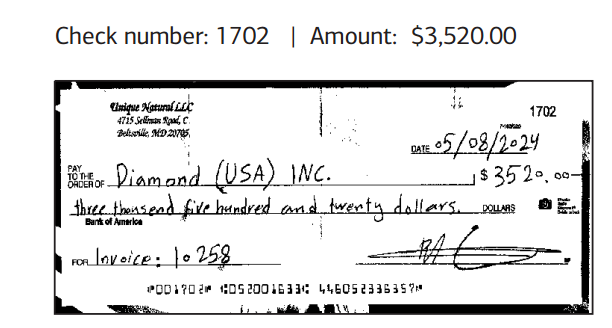 Check number: 1702 | Amount: $3,520.00
Unique Natural LLC
4715 Sellman Road, C
Beltsville, MD 20705
1702
DATE 05/08/2024
PAY TO THE ORDER OF Diamond (USA) INC. $3520.00
three thousend five hundred and twenty dollars. DOLLARS
Bank of America
FOR Invoice: 10258
⑈001702⑈ ⑆052001633⑆ 446052336357⑈